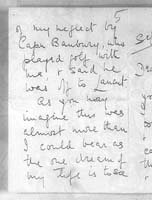 5
of my neglect by
Capn Banbury, who
played golf with
me & said he
was off to
As you may
imagine this was
almost more than
I could bear as
the one dream of
my life is to see